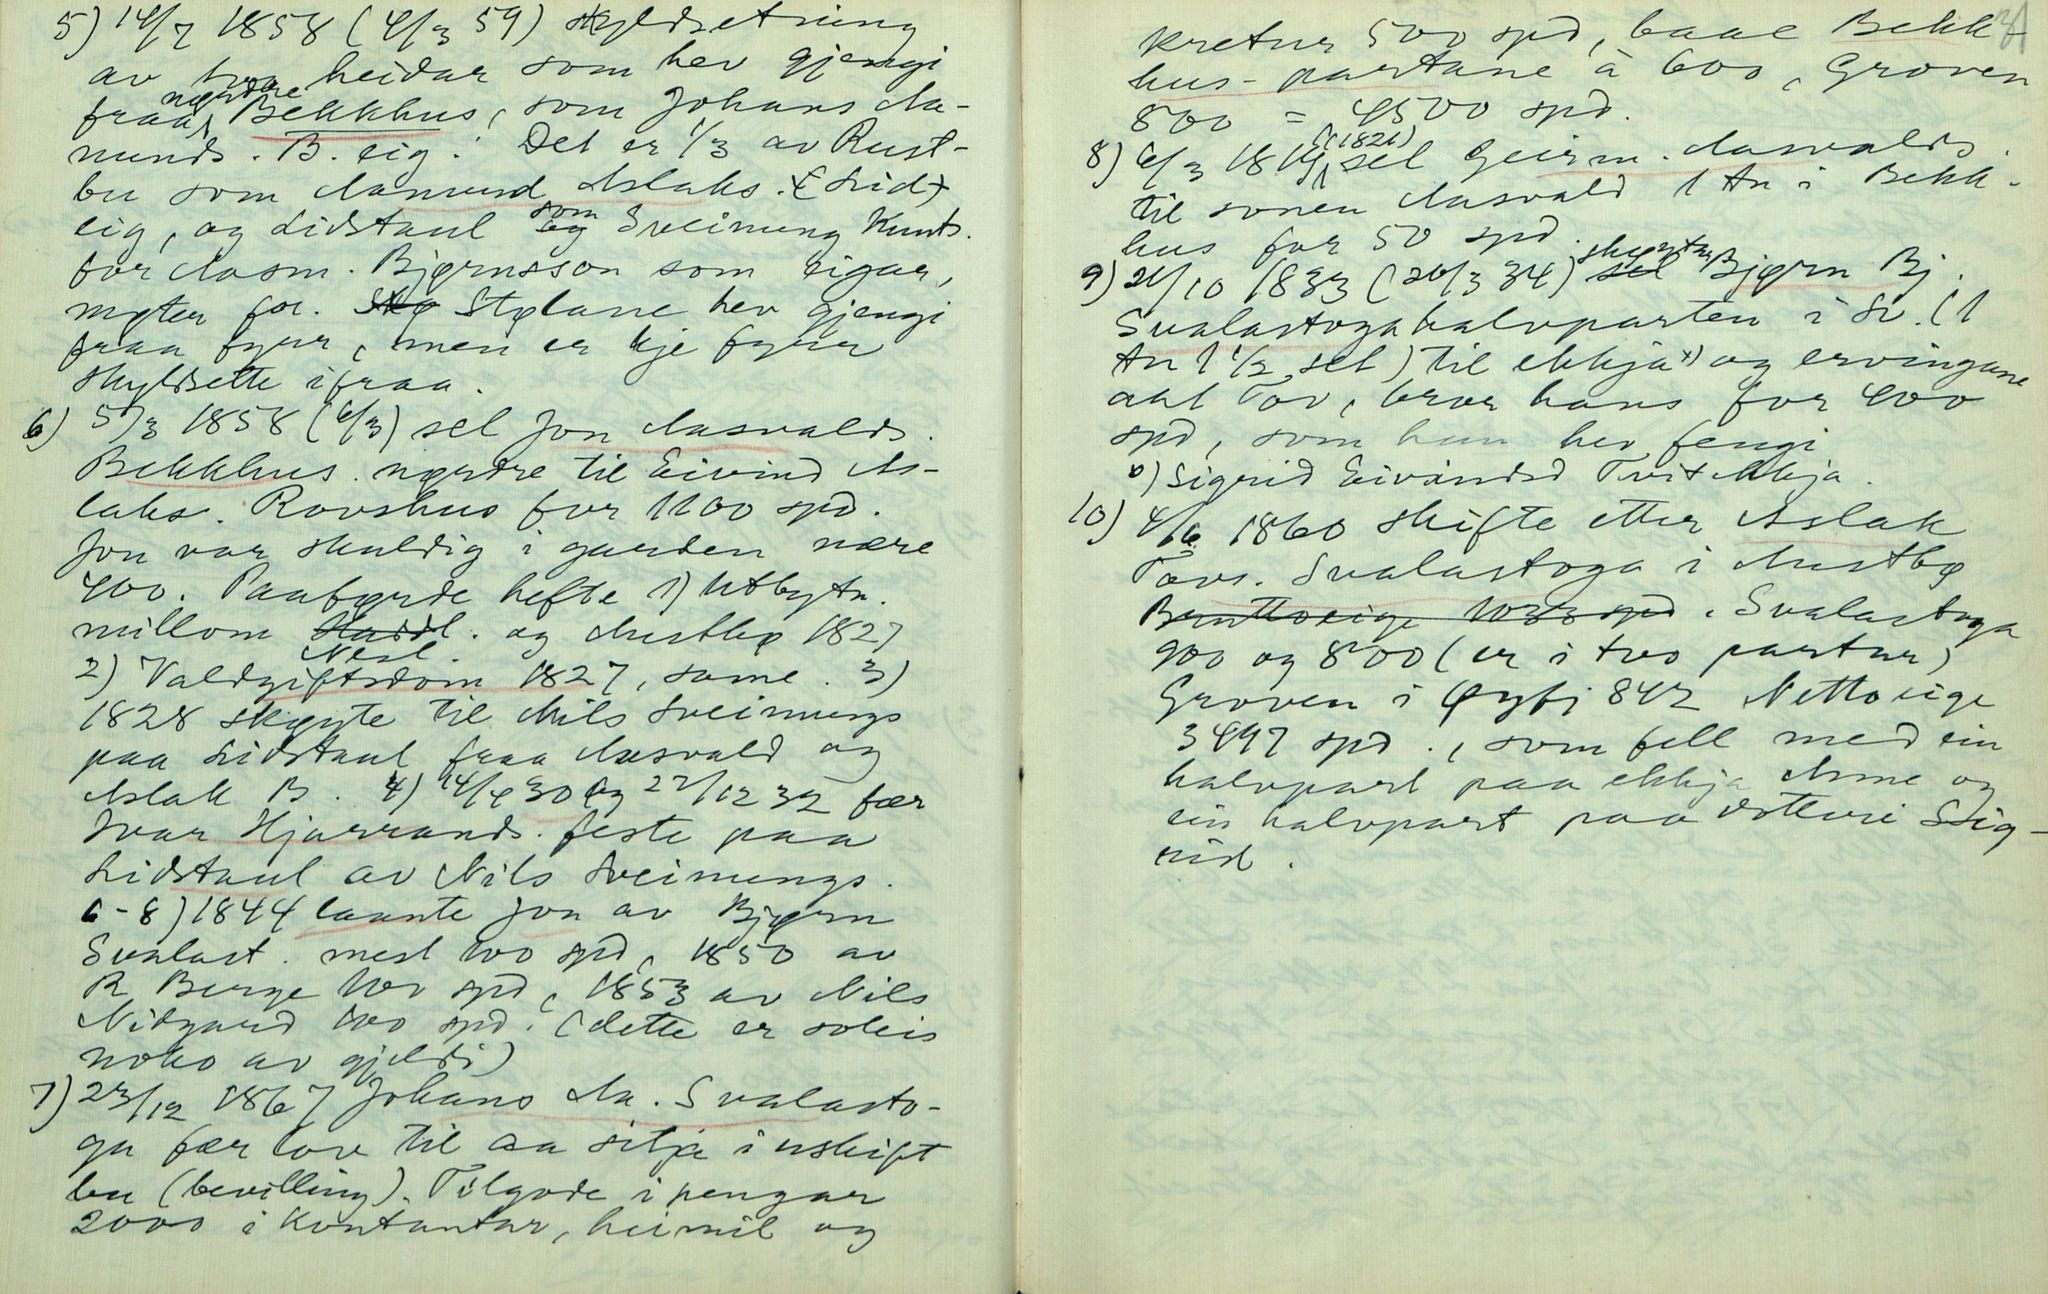 5) 14/7 1858 (4/3 59) skyldsetning
av tvo heidar som hev gjengi
fraa nørdre Bekkhus, som Johans Aa-
munds. B. eig. Det er 1/3 av Rust-
bu som Aamund Aslaks. (Lid)
eig, og Lidstaul som Sveinung Knuts.
for Aasm. Bjørnsson som eigar,
møter for. Stølane hev gjengi
fraa fyrr, men er kje fyrr
skyldsette ifraa.
6) 5/3 1858 (6/3) sel Jon Aasvalds.
Bekkhus nørdre til Eivind As-
laks. Rovshus for 1100 spd.
Jon var skuldig i garden nære
400. Paaførde hefte 1) Utbytn.
millom Nesl. og Austbø 1827
2) Valdgiftsdom 1827, same. 3)
1828 skøyte til Nils Sveinungs
paa Lidstaul fraa Aasvald og
Aslak B. 4) 14/4 30 og 22/12 32 fær
Ivar Hjarrands. feste paa
Lidstaul av Nils Sveinungs.
6-8) 1844 laante Jon av Bjørn
Svalast. mest 100 spd, 1850 av
R. Berge 100 spd, 1853 av Nils
Nidgard 100 spd. (dette er soleis
noko av gjeldi)
7) 23/12 1867 Johans Aa. Svalasto-
ga fær lov til aa sitja i uskift
bu (bevilling). Tilgode i pengar
2000 i kontantar, heimil og
31
kretur 500 spd, baae Bekk-
hus-partane à 600, Groven
800 = 4500 spd.
8) 6/3 1819 (1821) sel Geirm. Aasvalds.
til sonen Aasvald 1 tn i Bekk-
hus for 50 spd.
9) 21/10 1833 (26/3 34) skøyter Bjørn Bj.
Svalastoga halvparten i Sv. (1
tn 1 1/2 set) til ekkja x) og ervingane
aat Tov, bror hans for 400
spd, som han hev fengi
x) Sigrid Eivindsd Tveitekkja.
10) 4/6 1860 skifte etter Aslak
Tovs. Svalastoga i Austbø
Bruttoeige 1033 spd. Svalastoga
900 og 800 (er i tvo partar)
Groven i Øyfj 842 Nettoeige
3497 spd., som fell med ein
halvpart paa ekkja Anne og
ein halvpart paa dotteri Sig-
rid.